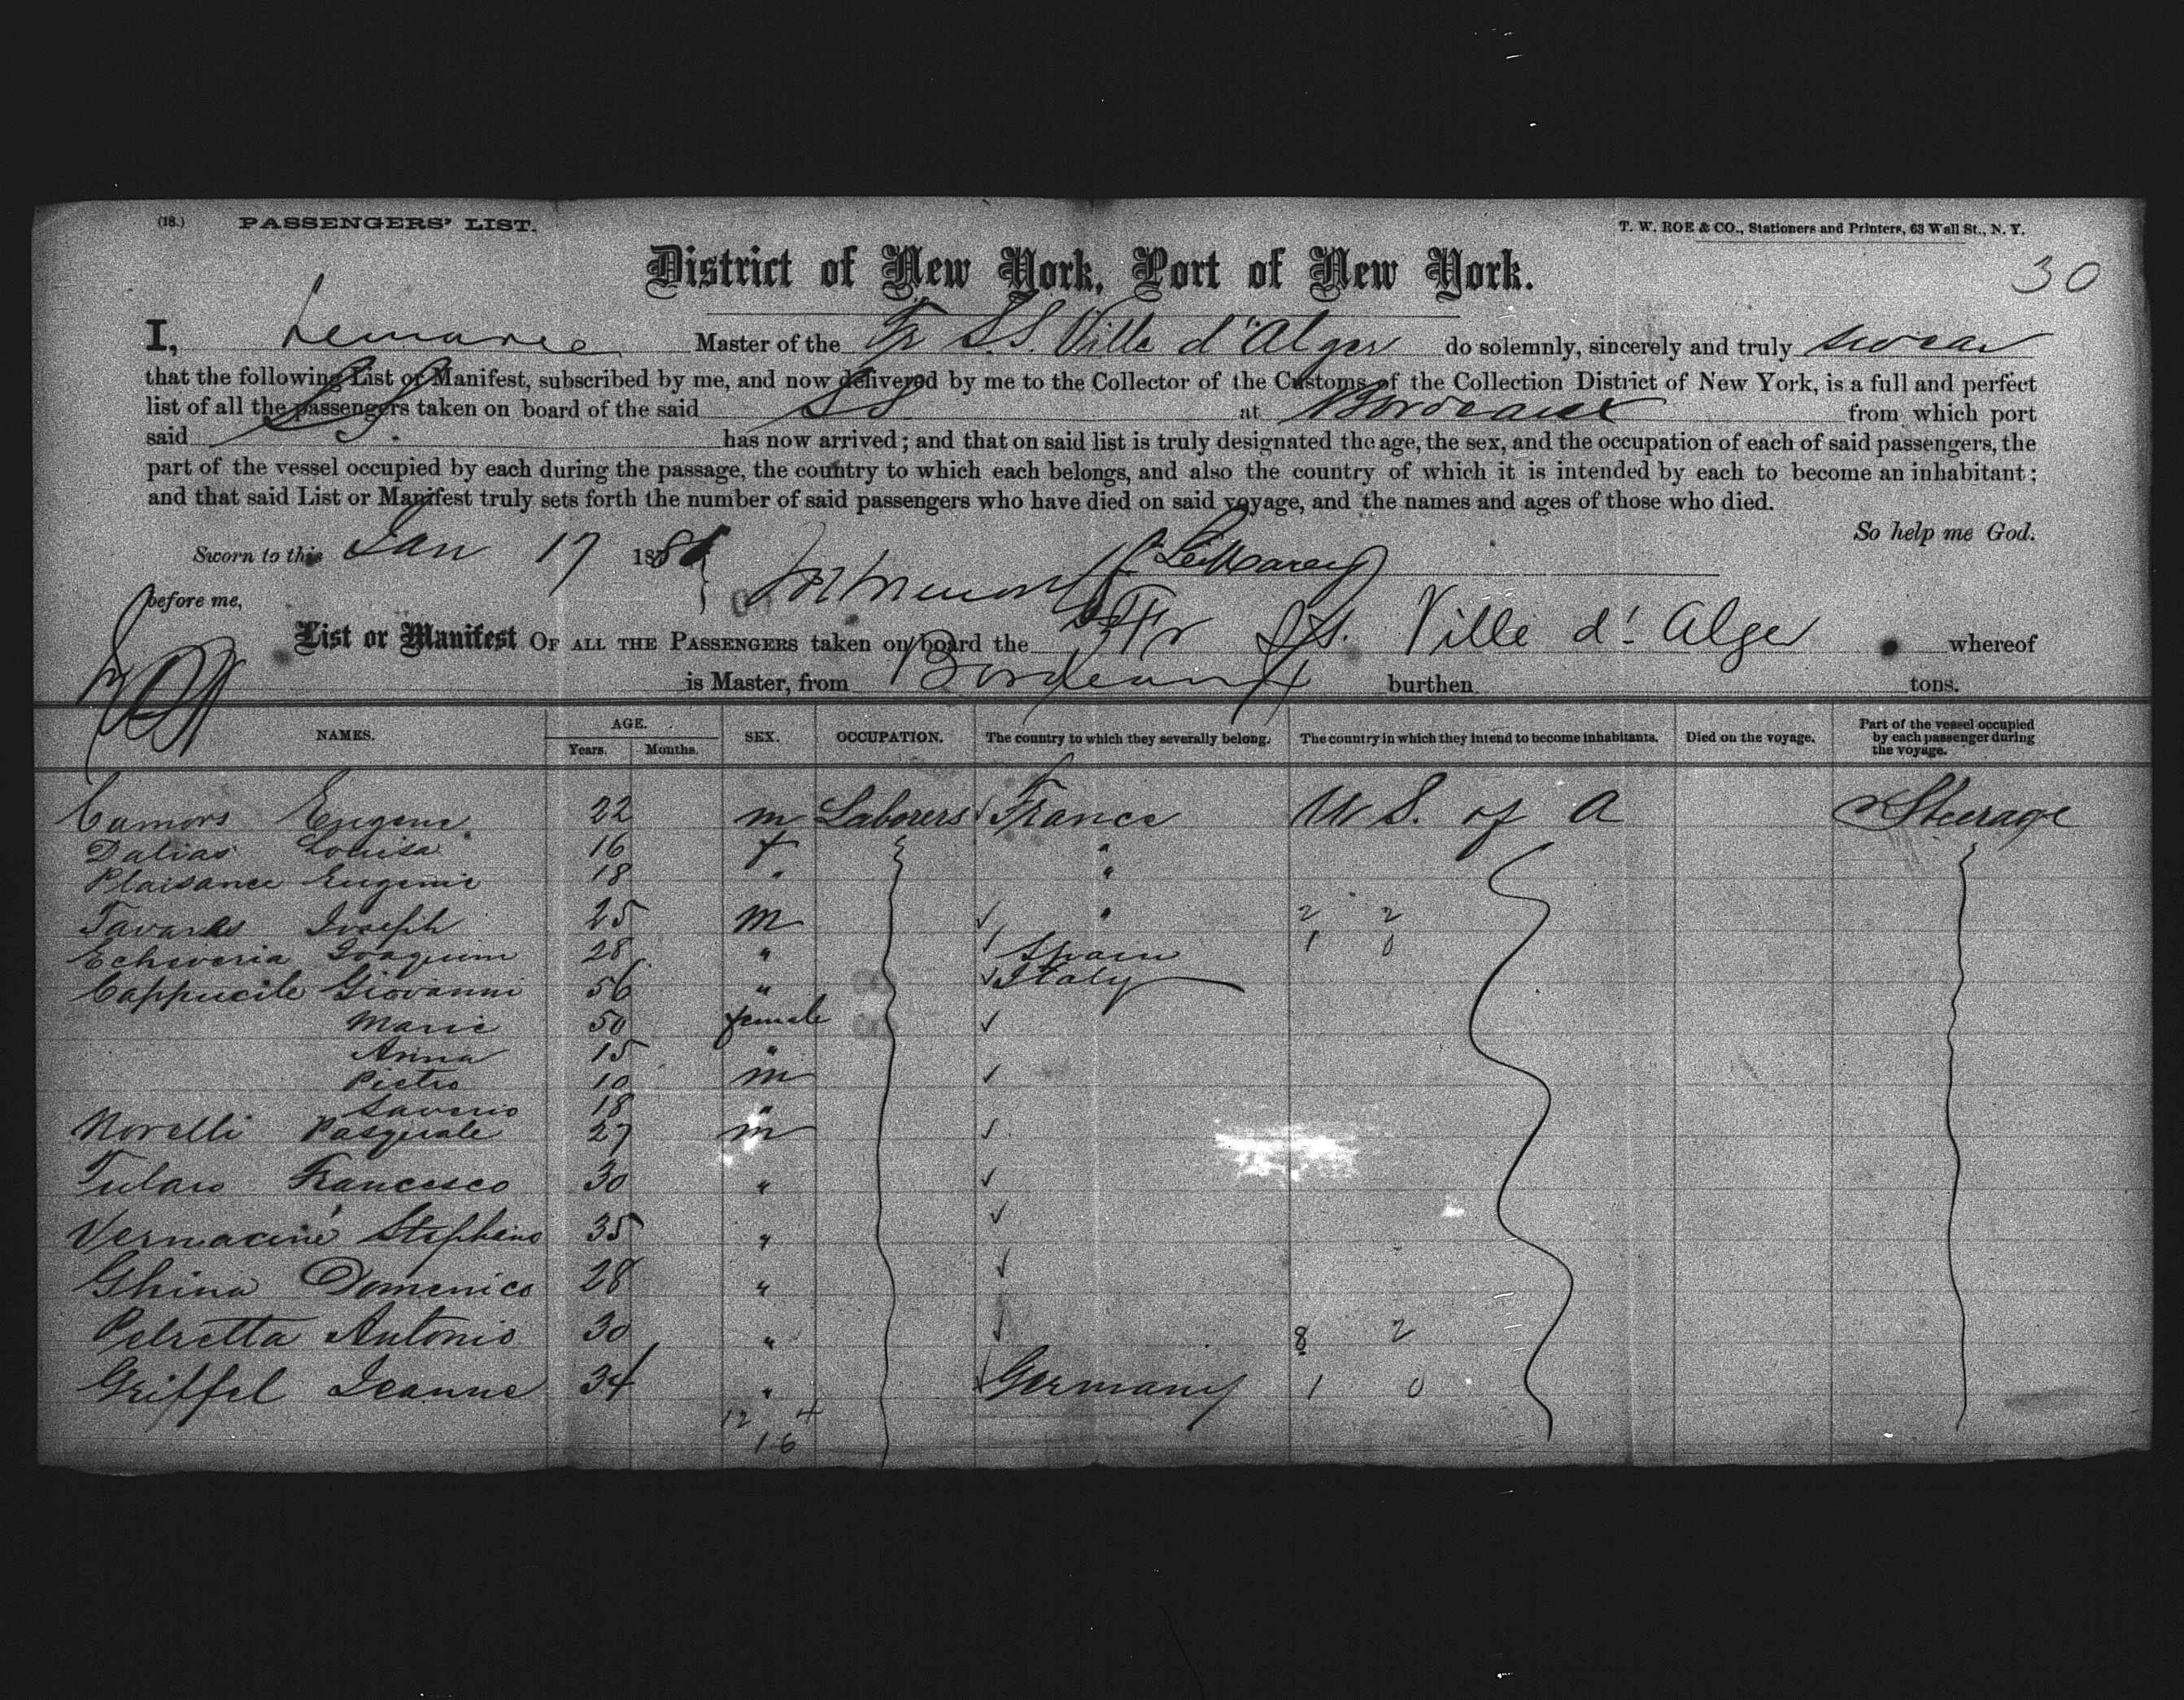 (18.) PASSENGERS' LIST. T. W. ROE & CO., Stationers and Printers, 63 Wall St., N. Y.
District of New York, Port of New York. 30
I, Lemarie Master of the Fr S.S. Ville d'Alger do solemnly, sincerely and truly swear
that the following List or Manifest, subscribed by me, and now delivered by me to the Collector of the Customs of the Collection District of New York, is a full and perfect
list of all the passengers taken on board of the said SS at Bordeaux from which port
said SS. has now arrived; and that on said list is truly designated the age, the sex, and the occupation of each of said passengers, the
part of the vessel occupied by each during the passage, the country to which each belongs, and also the country of which it is intended by each to become an inhabitant;
and that said List or Manifest truly sets forth the number of said passengers who have died on said voyage, and the names and ages of those who died.
So help me God.
Sworn to this Jan 17 188
before me,
List or Manifest OF ALL THE PASSENGERS taken on board the Fr SS. Ville d'Alger whereof
is Master, from Bordeaux burthen tons.
NAMES. AGE. Years. Months. SEX. OCCUPATION. The country to which they severally belong. The country in which they intend to become inhabitants. Died on the voyage. Part of the vessel occupied by each passenger during the voyage.
Camors Eugene 22 m Laborers France U S. of A Steerage
Dalias Louisa 16 f "
Plaisance Eugenie 18 " "
Tavares Joseph 25 M " 2 2
Echeveria Joaquim 28 " Spain 1 0
Cappucile Giovanni 56 " Italy
Marie 50 female
Anna 15 "
Pietro 10 m
Saverio 18 "
Novelli Pasquale 27 m
Tularo Francesco 30 "
Vermacine Stephano 35 "
Ghina Domenico 28 "
Petretta Antonio 30 " 8 2
Griffel Jeanne 34 " Germany 1 0
12 4
16